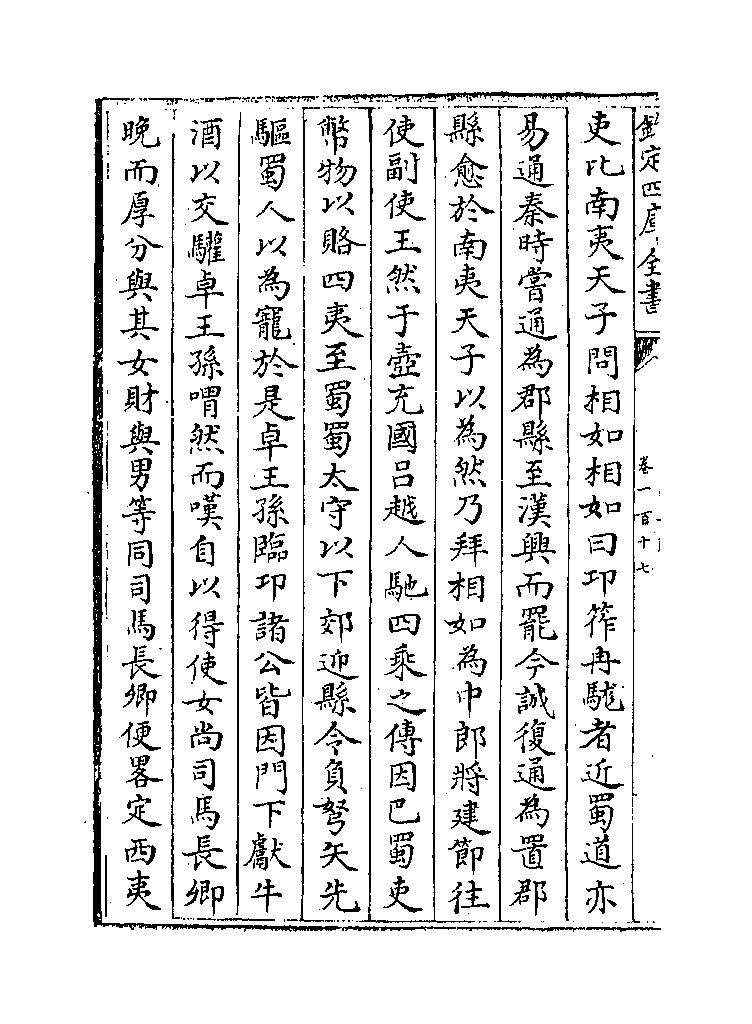 欽定四庫全書
卷一百十七
吏比南夷天子問相如相如曰卭筰冉駹者近蜀道亦
易通秦時嘗通為郡縣至漢興而罷今誠復通為置郡
縣愈於南夷天子以為然乃拜相如為中郎將建節往
使副使王然于壺充國吕越人馳四乘之傳因巴蜀吏
幣物以賂四夷至蜀蜀太守以下郊迎縣令負弩矢先
驅蜀人以為寵於是卓王孫臨卭諸公皆因門下獻牛
酒以交驩卓王孫喟然而嘆自以得使女尚司馬長卿
晚而厚分與其女財與男等同司馬長卿便畧定西夷